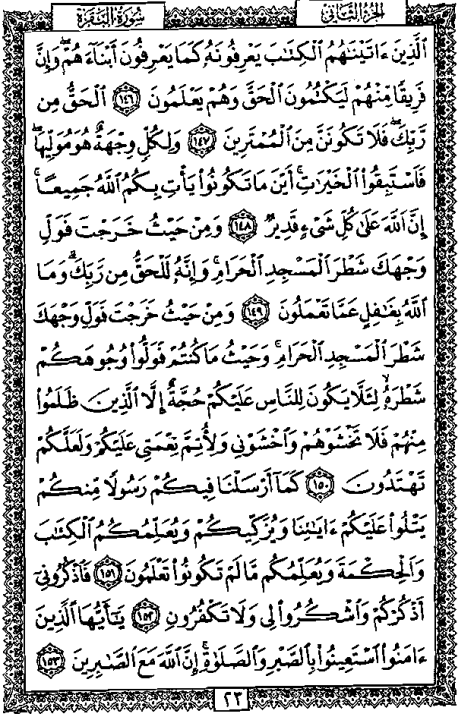 الجزء الثاني
سورة البقرة
ٱلَّذِينَ ءَاتَيۡنَٰهُمُ ٱلۡكِتَٰبَ يَعۡرِفُونَهُۥ كَمَا يَعۡرِفُونَ أَبۡنَآءَهُمۡۖ وَإِنَّ
فَرِيقٗا مِّنۡهُمۡ لَيَكۡتُمُونَ ٱلۡحَقَّ وَهُمۡ يَعۡلَمُونَ ١٤٦ ٱلۡحَقُّ مِن
رَّبِّكَ فَلَا تَكُونَنَّ مِنَ ٱلۡمُمۡتَرِينَ ١٤٧ وَلِكُلّٖ وِجۡهَةٌ هُوَ مُوَلِّيهَاۖ
فَٱسۡتَبِقُواْ ٱلۡخَيۡرَٰتِۚ أَيۡنَ مَا تَكُونُواْ يَأۡتِ بِكُمُ ٱللَّهُ جَمِيعًاۚ
إِنَّ ٱللَّهَ عَلَىٰ كُلِّ شَيۡءٖ قَدِيرٞ ١٤٨ وَمِنۡ حَيۡثُ خَرَجۡتَ فَوَلِّ
وَجۡهَكَ شَطۡرَ ٱلۡمَسۡجِدِ ٱلۡحَرَامِۖ وَإِنَّهُۥ لَلۡحَقُّ مِن رَّبِّكَۗ وَمَا
ٱللَّهُ بِغَٰفِلٍ عَمَّا تَعۡمَلُونَ ١٤٩ وَمِنۡ حَيۡثُ خَرَجۡتَ فَوَلِّ وَجۡهَكَ
شَطۡرَ ٱلۡمَسۡجِدِ ٱلۡحَرَامِۚ وَحَيۡثُ مَا كُنتُمۡ فَوَلُّواْ وُجُوهَكُمۡ
شَطۡرَهُۥ لِئَلَّا يَكُونَ لِلنَّاسِ عَلَيۡكُمۡ حُجَّةٌ إِلَّا ٱلَّذِينَ ظَلَمُواْ
مِنۡهُمۡ فَلَا تَخۡشَوۡهُمۡ وَٱخۡشَوۡنِي وَلِأُتِمَّ نِعۡمَتِي عَلَيۡكُمۡ وَلَعَلَّكُمۡ
تَهۡتَدُونَ ١٥٠ كَمَآ أَرۡسَلۡنَا فِيكُمۡ رَسُولٗا مِّنكُمۡ
يَتۡلُواْ عَلَيۡكُمۡ ءَايَٰتِنَا وَيُزَكِّيكُمۡ وَيُعَلِّمُكُمُ ٱلۡكِتَٰبَ
وَٱلۡحِكۡمَةَ وَيُعَلِّمُكُم مَّا لَمۡ تَكُونُواْ تَعۡلَمُونَ ١٥١ فَٱذۡكُرُونِيٓ
أَذۡكُرۡكُمۡ وَٱشۡكُرُواْ لِي وَلَا تَكۡفُرُونِ ١٥٢ يَٰٓأَيُّهَا ٱلَّذِينَ
ءَامَنُواْ ٱسۡتَعِينُواْ بِٱلصَّبۡرِ وَٱلصَّلَوٰةِۚ إِنَّ ٱللَّهَ مَعَ ٱلصَّٰبِرِينَ ١٥٣
٢٣